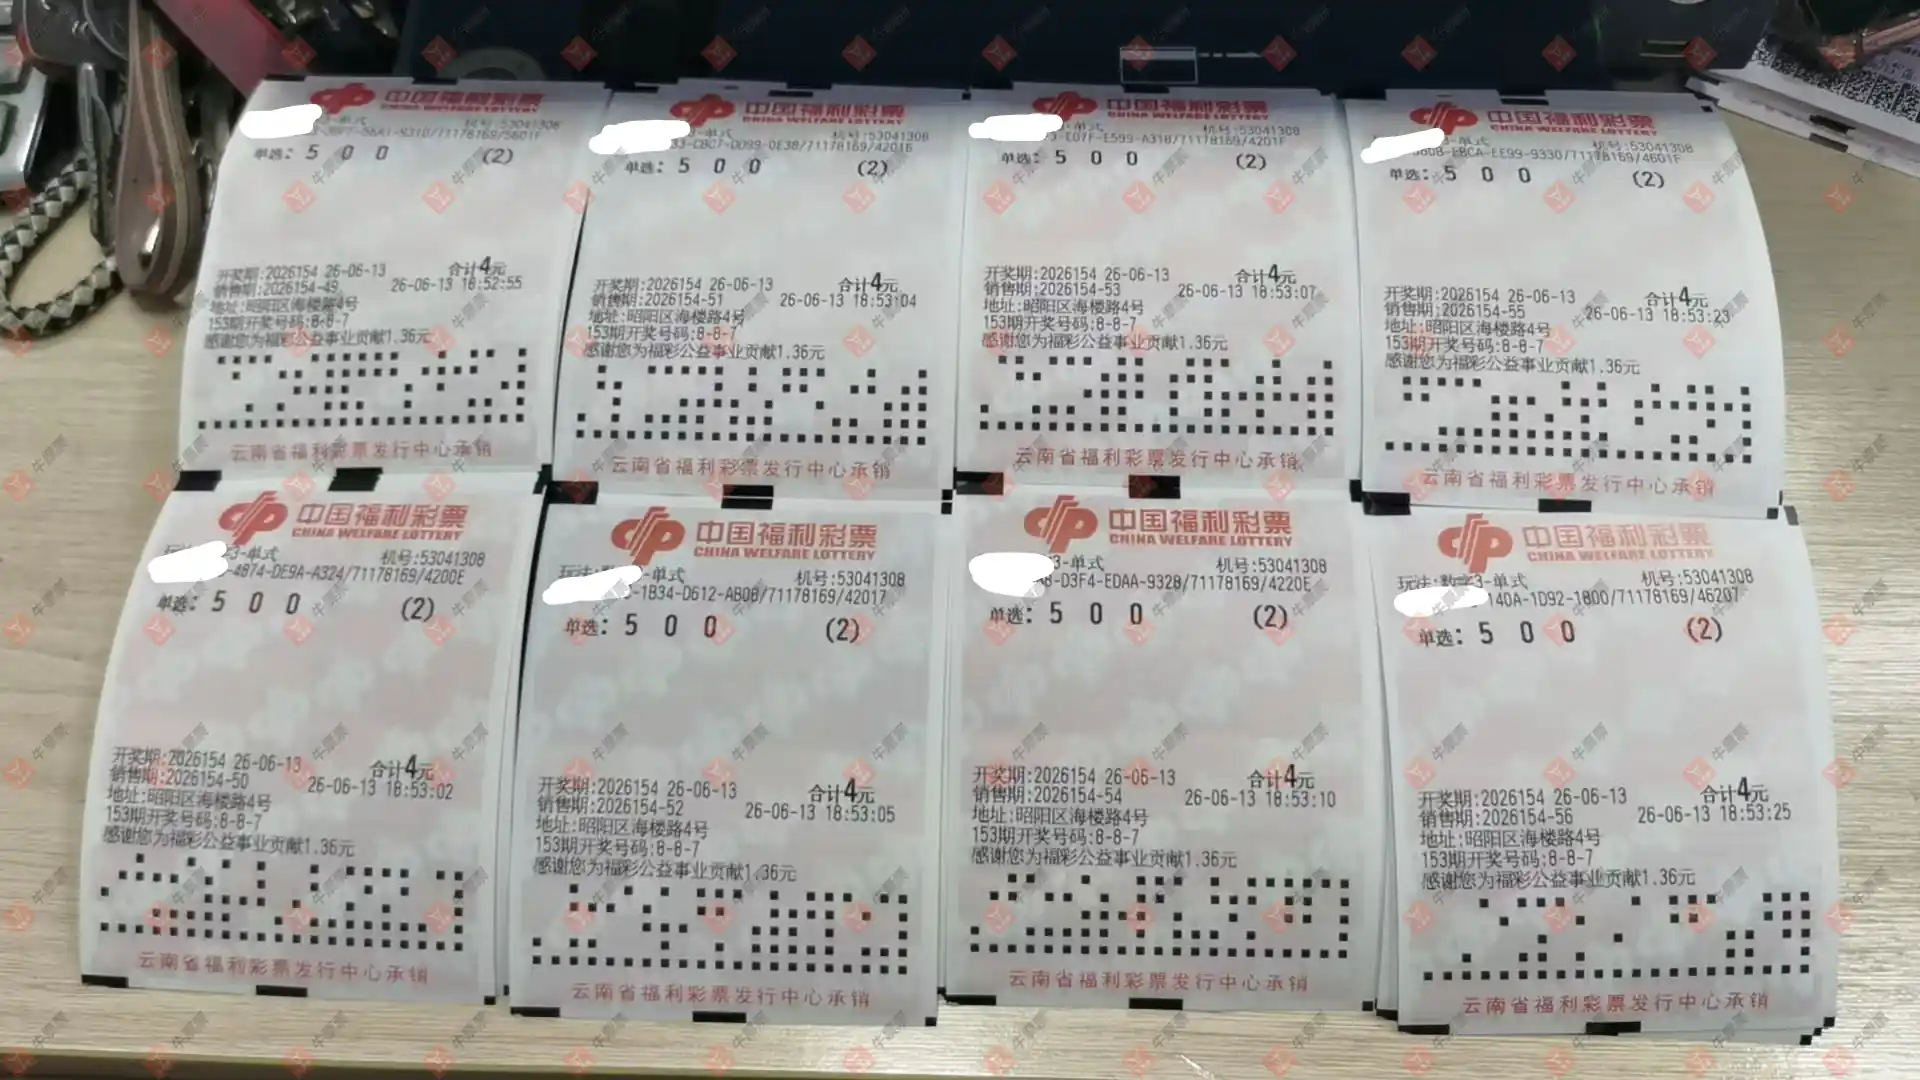 中国福利彩票
CHINA WELFARE LOTTERY
3-单式 机号:53041308
单选: 5 0 0 (2)
开奖期:2026154 26-06-13 合计4元
销售期:2026154-49 26-06-13 18:52:55
地址:昭阳区海楼路4号
153期开奖号码:8-8-7
感谢您为福彩公益事业贡献1.36元
云南省福利彩票发行中心承销
中国福利彩票
CHINA WELFARE LOTTERY
-单式 机号:53041308
单选: 5 0 0 (2)
开奖期:2026154 26-06-13 合计4元
销售期:2026154-51 26-06-13 18:53:04
地址:昭阳区海楼路4号
153期开奖号码:8-8-7
感谢您为福彩公益事业贡献1.36元
云南省福利彩票发行中心承销
中国福利彩票
CHINA WELFARE LOTTERY
-单式 机号:53041308
3-E07F-E599-A318/71178169/4201F
单选: 5 0 0 (2)
开奖期:2026154 26-06-13 合计4元
销售期:2026154-53 26-06-13 18:53:07
地址:昭阳区海楼路4号
153期开奖号码:8-8-7
感谢您为福彩公益事业贡献1.36元
云南省福利彩票发行中心承销
中国福利彩票
CHINA WELFARE LOTTERY
3-单式 机号:53041308
单选: 5 0 0 (2)
开奖期:2026154 26-06-13 合计4元
销售期:2026154-55 26-06-13 18:53:23
地址:昭阳区海楼路4号
153期开奖号码:8-8-7
感谢您为福彩公益事业贡献1.36元
云南省福利彩票发行中心承销
中国福利彩票
CHINA WELFARE LOTTERY
玩法: 字3-单式 机号:53041308
-4874-DE9A-A324/71178169/4200E
单选: 5 0 0 (2)
开奖期:2026154 26-06-13 合计4元
销售期:2026154-50 26-06-13 18:53:02
地址:昭阳区海楼路4号
153期开奖号码:8-8-7
感谢您为福彩公益事业贡献1.36元
云南省福利彩票发行中心承销
中国福利彩票
CHINA WELFARE LOTTERY
玩法:数 -单式 机号:53041308
-1B34-D612-AB08/71178169/42017
单选: 5 0 0 (2)
开奖期:2026154 26-06-13 合计4元
销售期:2026154-52 26-06-13 18:53:05
地址:昭阳区海楼路4号
153期开奖号码:8-8-7
感谢您为福彩公益事业贡献1.36元
云南省福利彩票发行中心承销
中国福利彩票
CHINA WELFARE LOTTERY
3-单式 机号:53041308
-D3F4-EDAA-9328/71178169/4220E
单选: 5 0 0 (2)
开奖期:2026154 26-06-13 合计4元
销售期:2026154-54 26-06-13 18:53:10
地址:昭阳区海楼路4号
153期开奖号码:8-8-7
感谢您为福彩公益事业贡献1.36元
云南省福利彩票发行中心承销
中国福利彩票
CHINA WELFARE LOTTERY
玩法:数字3-单式 机号:53041308
140A-1D92-1800/71178169/46207
单选: 5 0 0 (2)
开奖期:2026154 26-06-13 合计4元
销售期:2026154-56 26-06-13 18:53:25
地址:昭阳区海楼路4号
153期开奖号码:8-8-7
感谢您为福彩公益事业贡献1.36元
云南省福利彩票发行中心承销